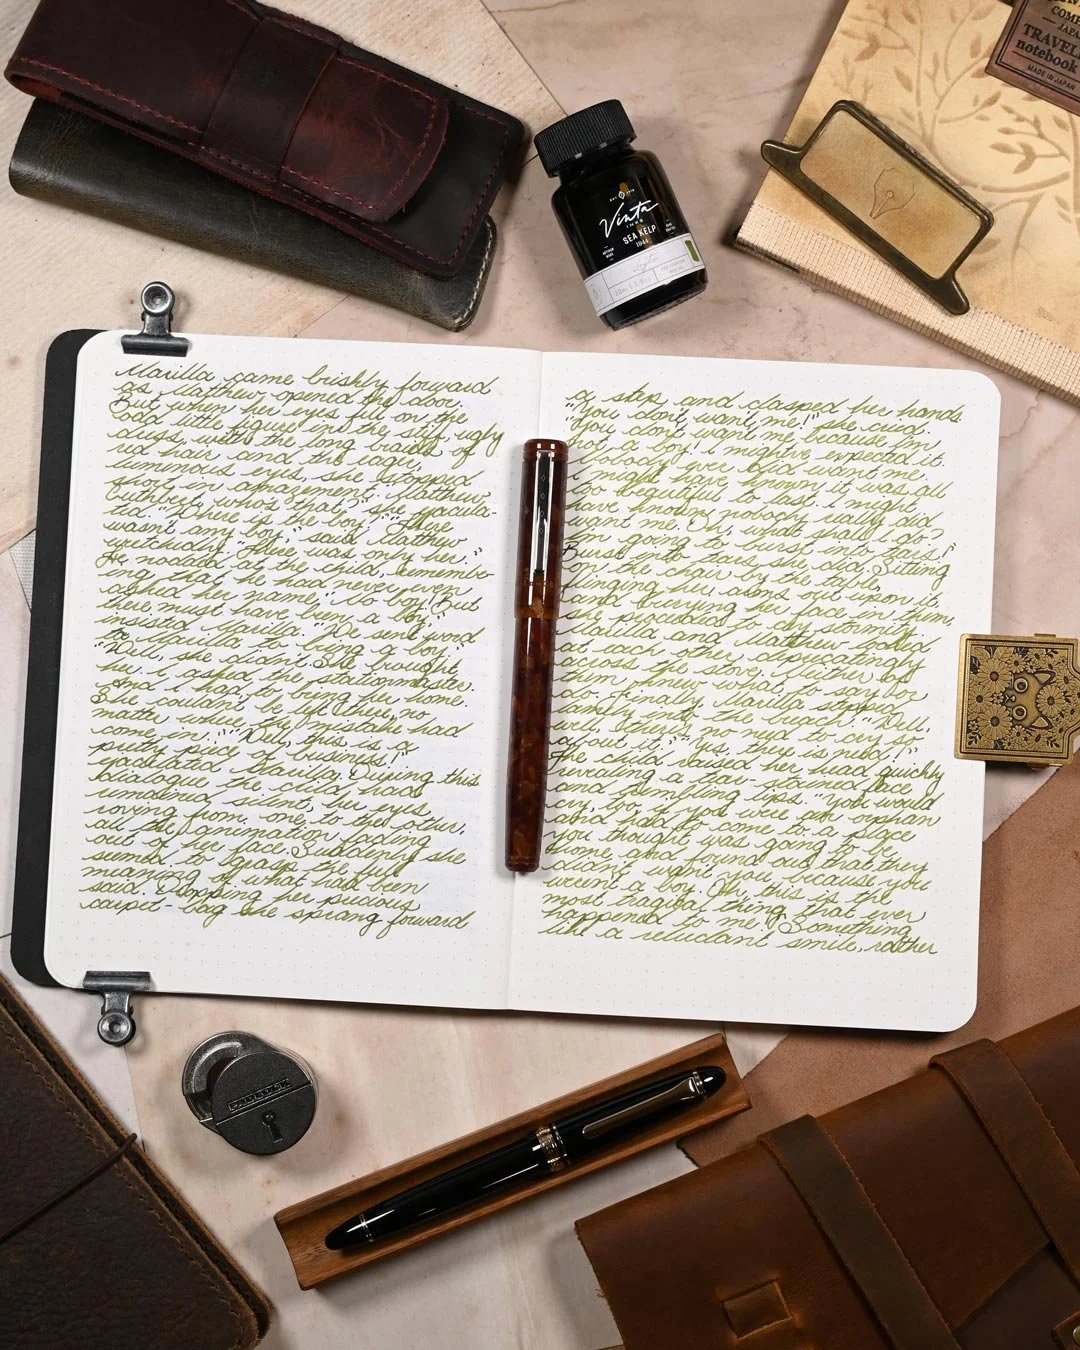 COMP
JAPA
TRAVEL
notebook
MADE IN JAPAN
Vinta
INKS
SEA KELP
1944
Marilla came briskly forward
as Matthew opened the door.
But when her eyes fell on the
odd little figure in the stiff, ugly
dress, with the long braids of
red hair and the eager,
luminous eyes, she stopped
short in amazement. "Matthew
Cuthbert, who's that?" she ejacula-
ted. "Where is the boy?" "There
wasn't any boy," said Matthew
wretchedly. "There was only her."
He nodded at the child, remember-
ing that he had never even
asked her name. "No boy! But
there must have been a boy,"
insisted Marilla. "We sent word
to bring a boy."
"Well, she didn't. She brought
her. I asked the stationmaster.
And I had to bring her home.
She couldn't be left there, no
matter where the mistake had
come in." "Well, this is a
pretty piece of business!"
ejaculated Marilla. During this
dialogue the child had
remained silent, her eyes
roving from one to the other,
all the animation fading
out of her face. Suddenly she
seemed to grasp the full
meaning of what had been
said. Dropping her precious
carpet-bag she sprang forward
a step and clasped her hands.
"You don't want me!" she cried.
"You don't want me because I'm
not a boy! I might've expected it.
Nobody ever did want me.
I might have known it was all
too beautiful to last. I might
have known nobody really did
want me. Oh, what shall I do?
I'm going to burst into tears!"
Burst into tears she did. Sitting
on the chair by the table,
flinging her arms out upon it,
and burying her face in them,
she proceeded to cry stormily.
Marilla and Matthew looked
at each other deprecatingly
across the stove. Neither of
them knew what to say or
do. Finally Marilla stepped
lamely into the breach. "Well,
well, there's no need to cry so
about it." "Yes, there is need!"
The child raised her head quickly
revealing a tear-stained face
and trembling lips. "You would
cry, too, if you were an orphan
and had to come to a place
you thought was going to be
home and found out that they
didn't want you because you
weren't a boy. Oh, this is the
most tragical thing that ever
happened to me!" Something
like a reluctant smile, rather
PADLOCK